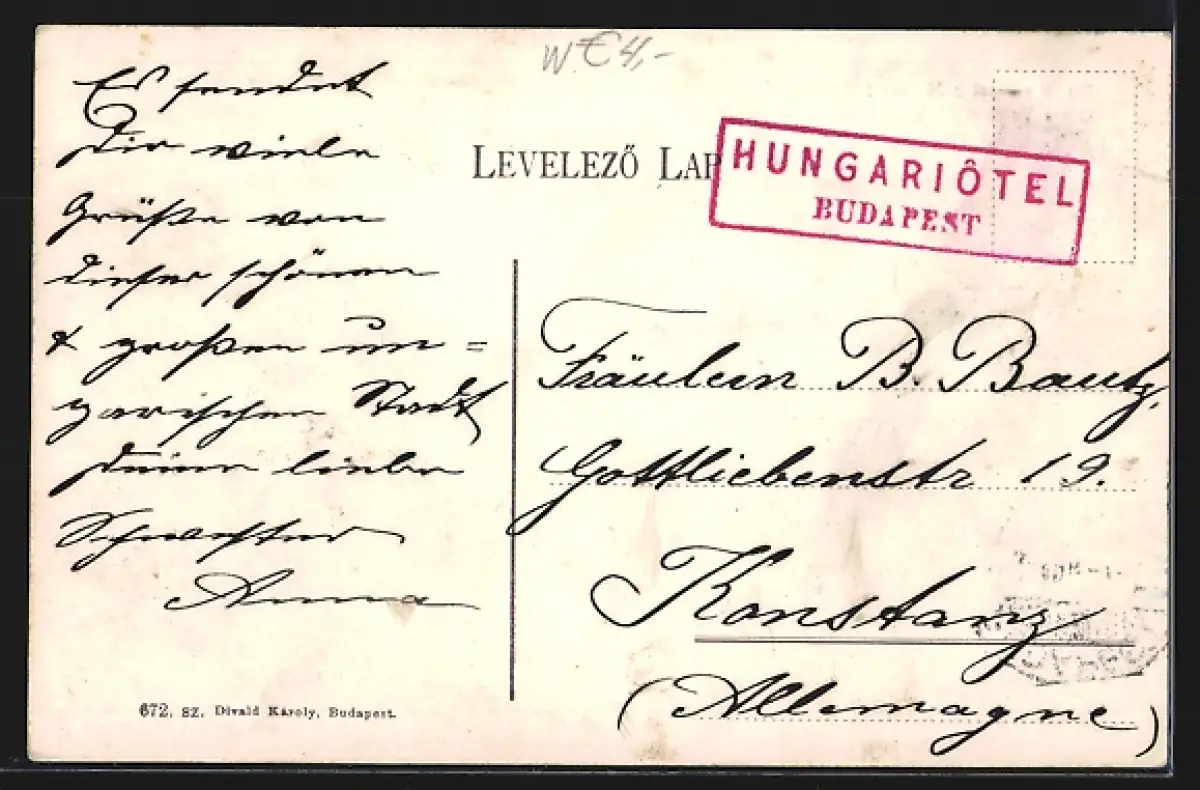 W € 4,-
LEVELEZŐ LAP
HUNGARIÔTEL
BUDAPEST
Es sendet
Dir viele
Grüße von
dieser schönen
& großen un=
garischen Stadt
Deine liebe
Schwester
Anna
Fräulein B. Bautz,
Gottliebenstr 19.
Konstanz
(Allemagne)
672. SZ. Divald Károly, Budapest.